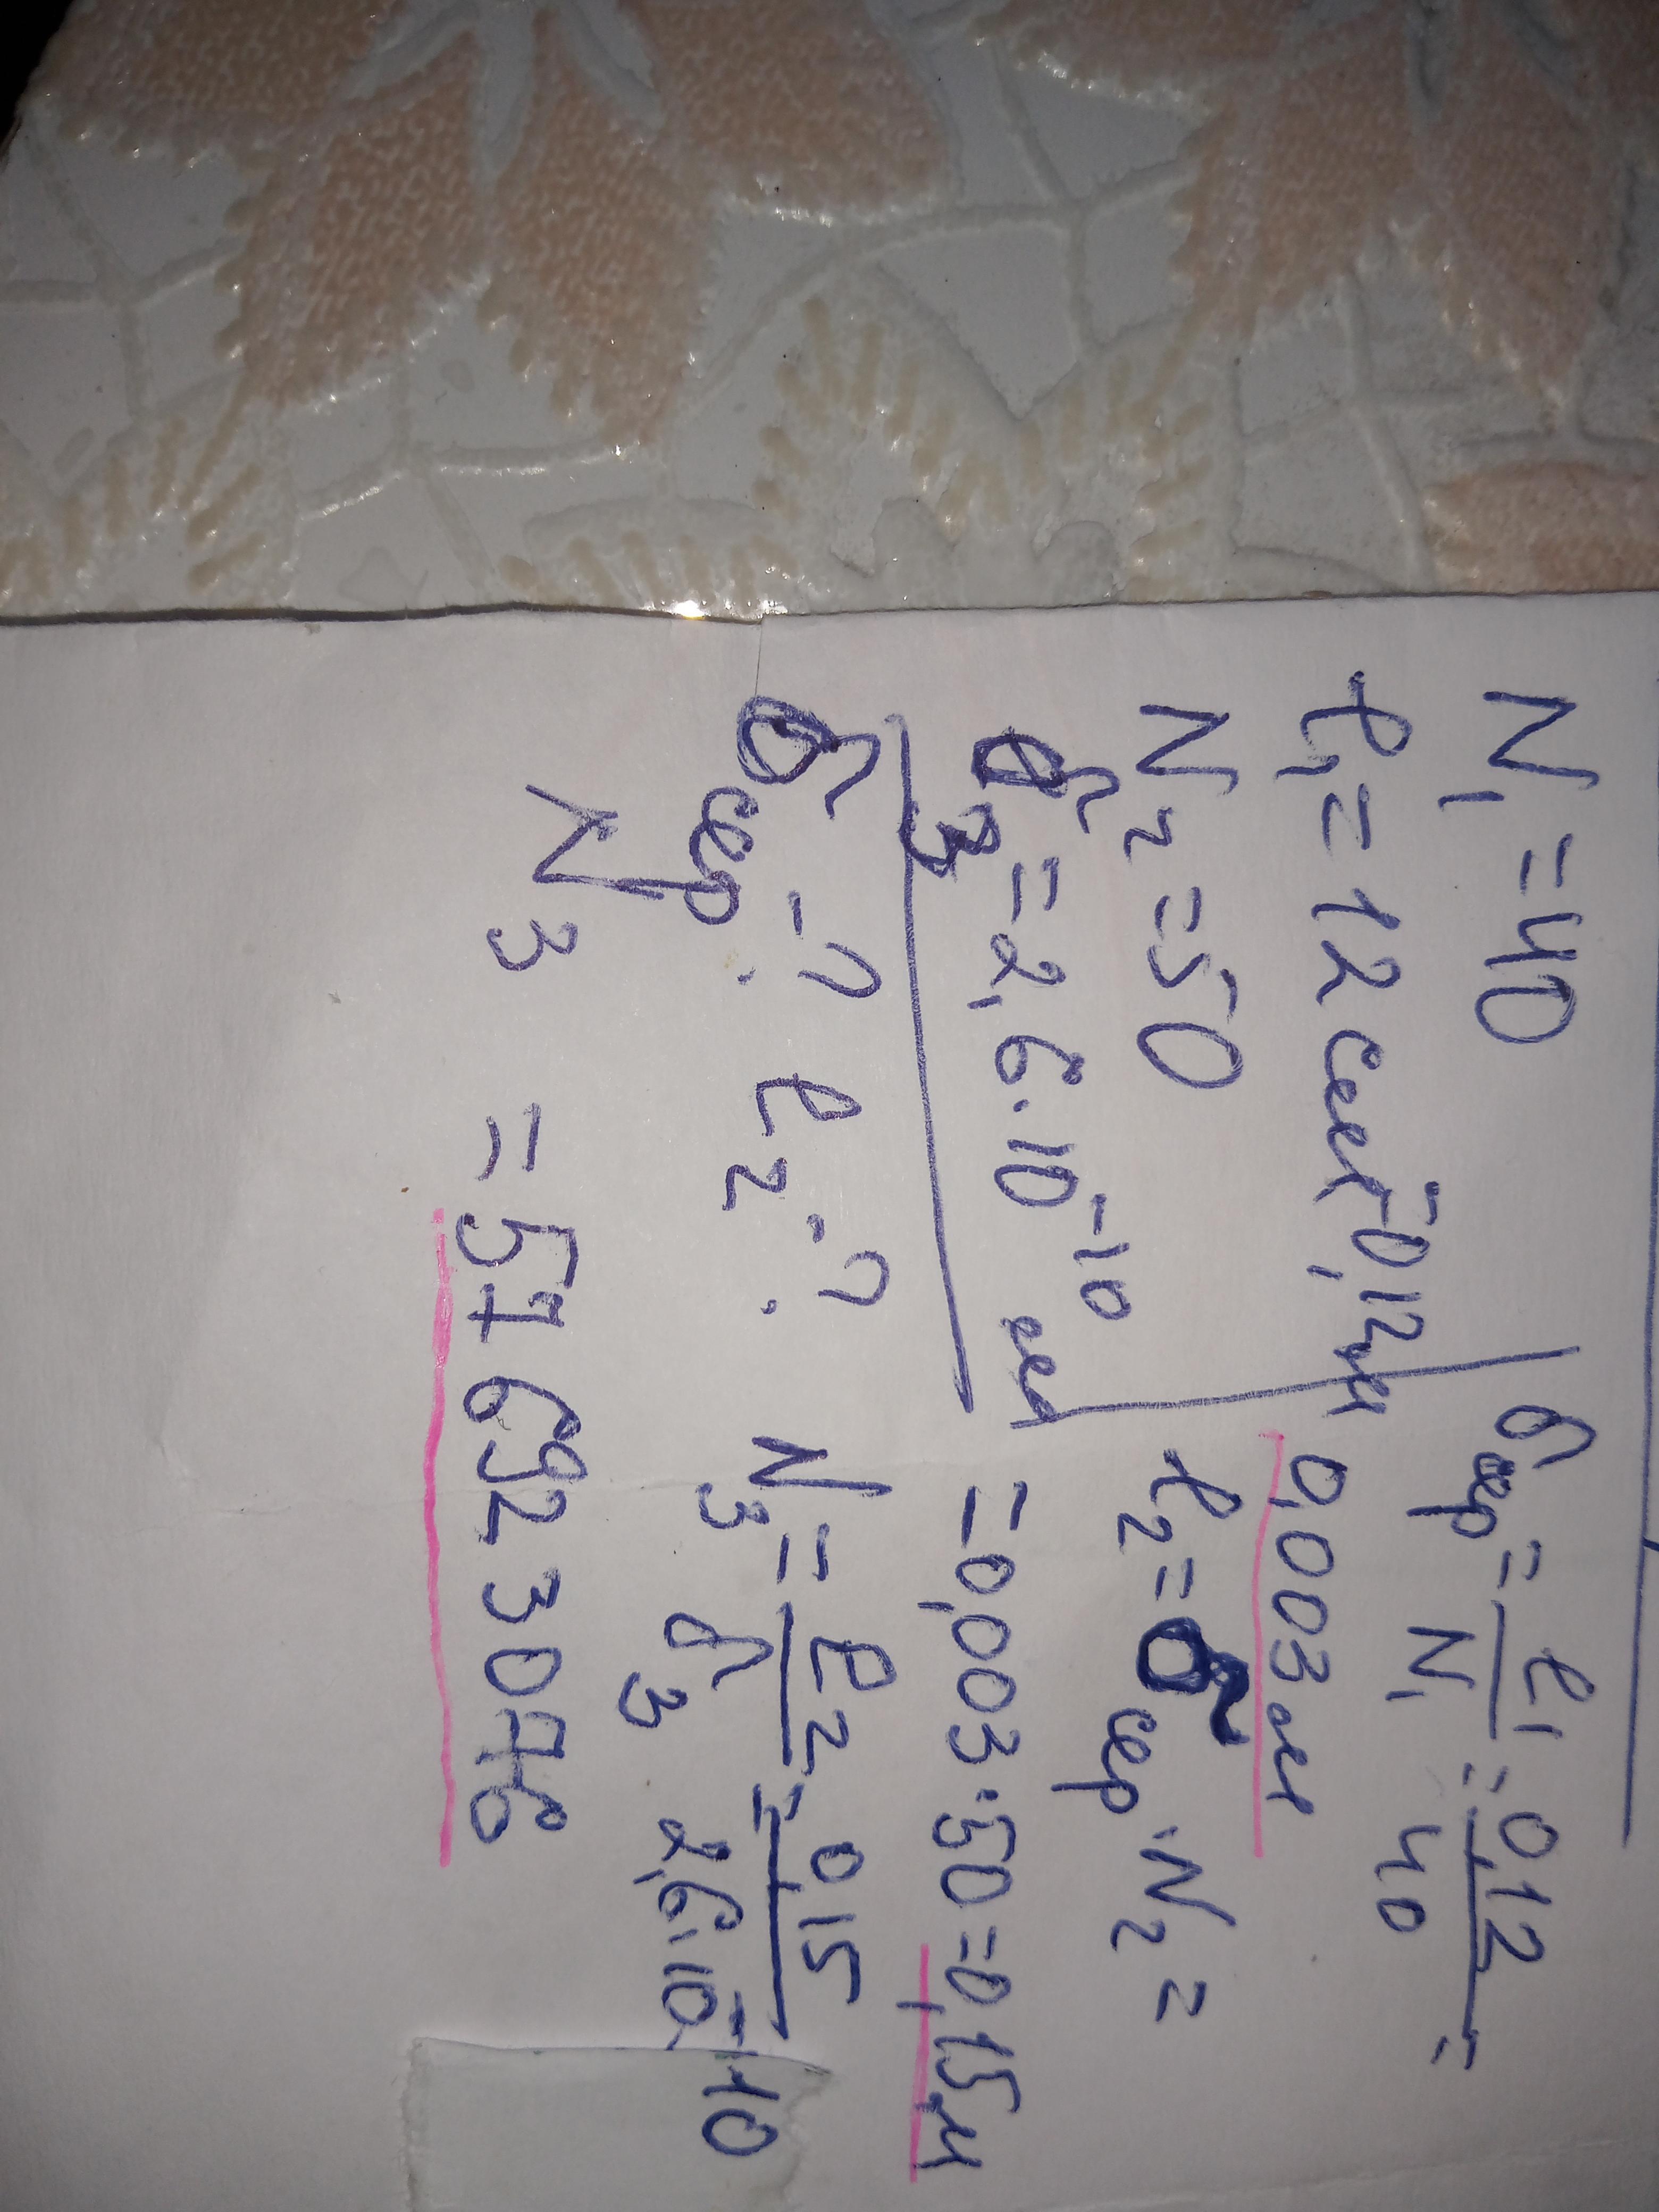 N₁ = 40
ℓ₁ = 12 см = 0,12 м
N₂ = 50
δ₃ = 2,6 · 10⁻¹⁰ м
δсер - ? ℓ₂ - ?
N₃
δсер = ℓ₁ / N₁ = 0,12 / 40 =
0,003 м
ℓ₂ = δсер · N₂ =
= 0,003 · 50 = 0,15 м
N₃ = ℓ₂ / δ₃ = 0,15 / 2,6 · 10⁻¹⁰
= 576923076